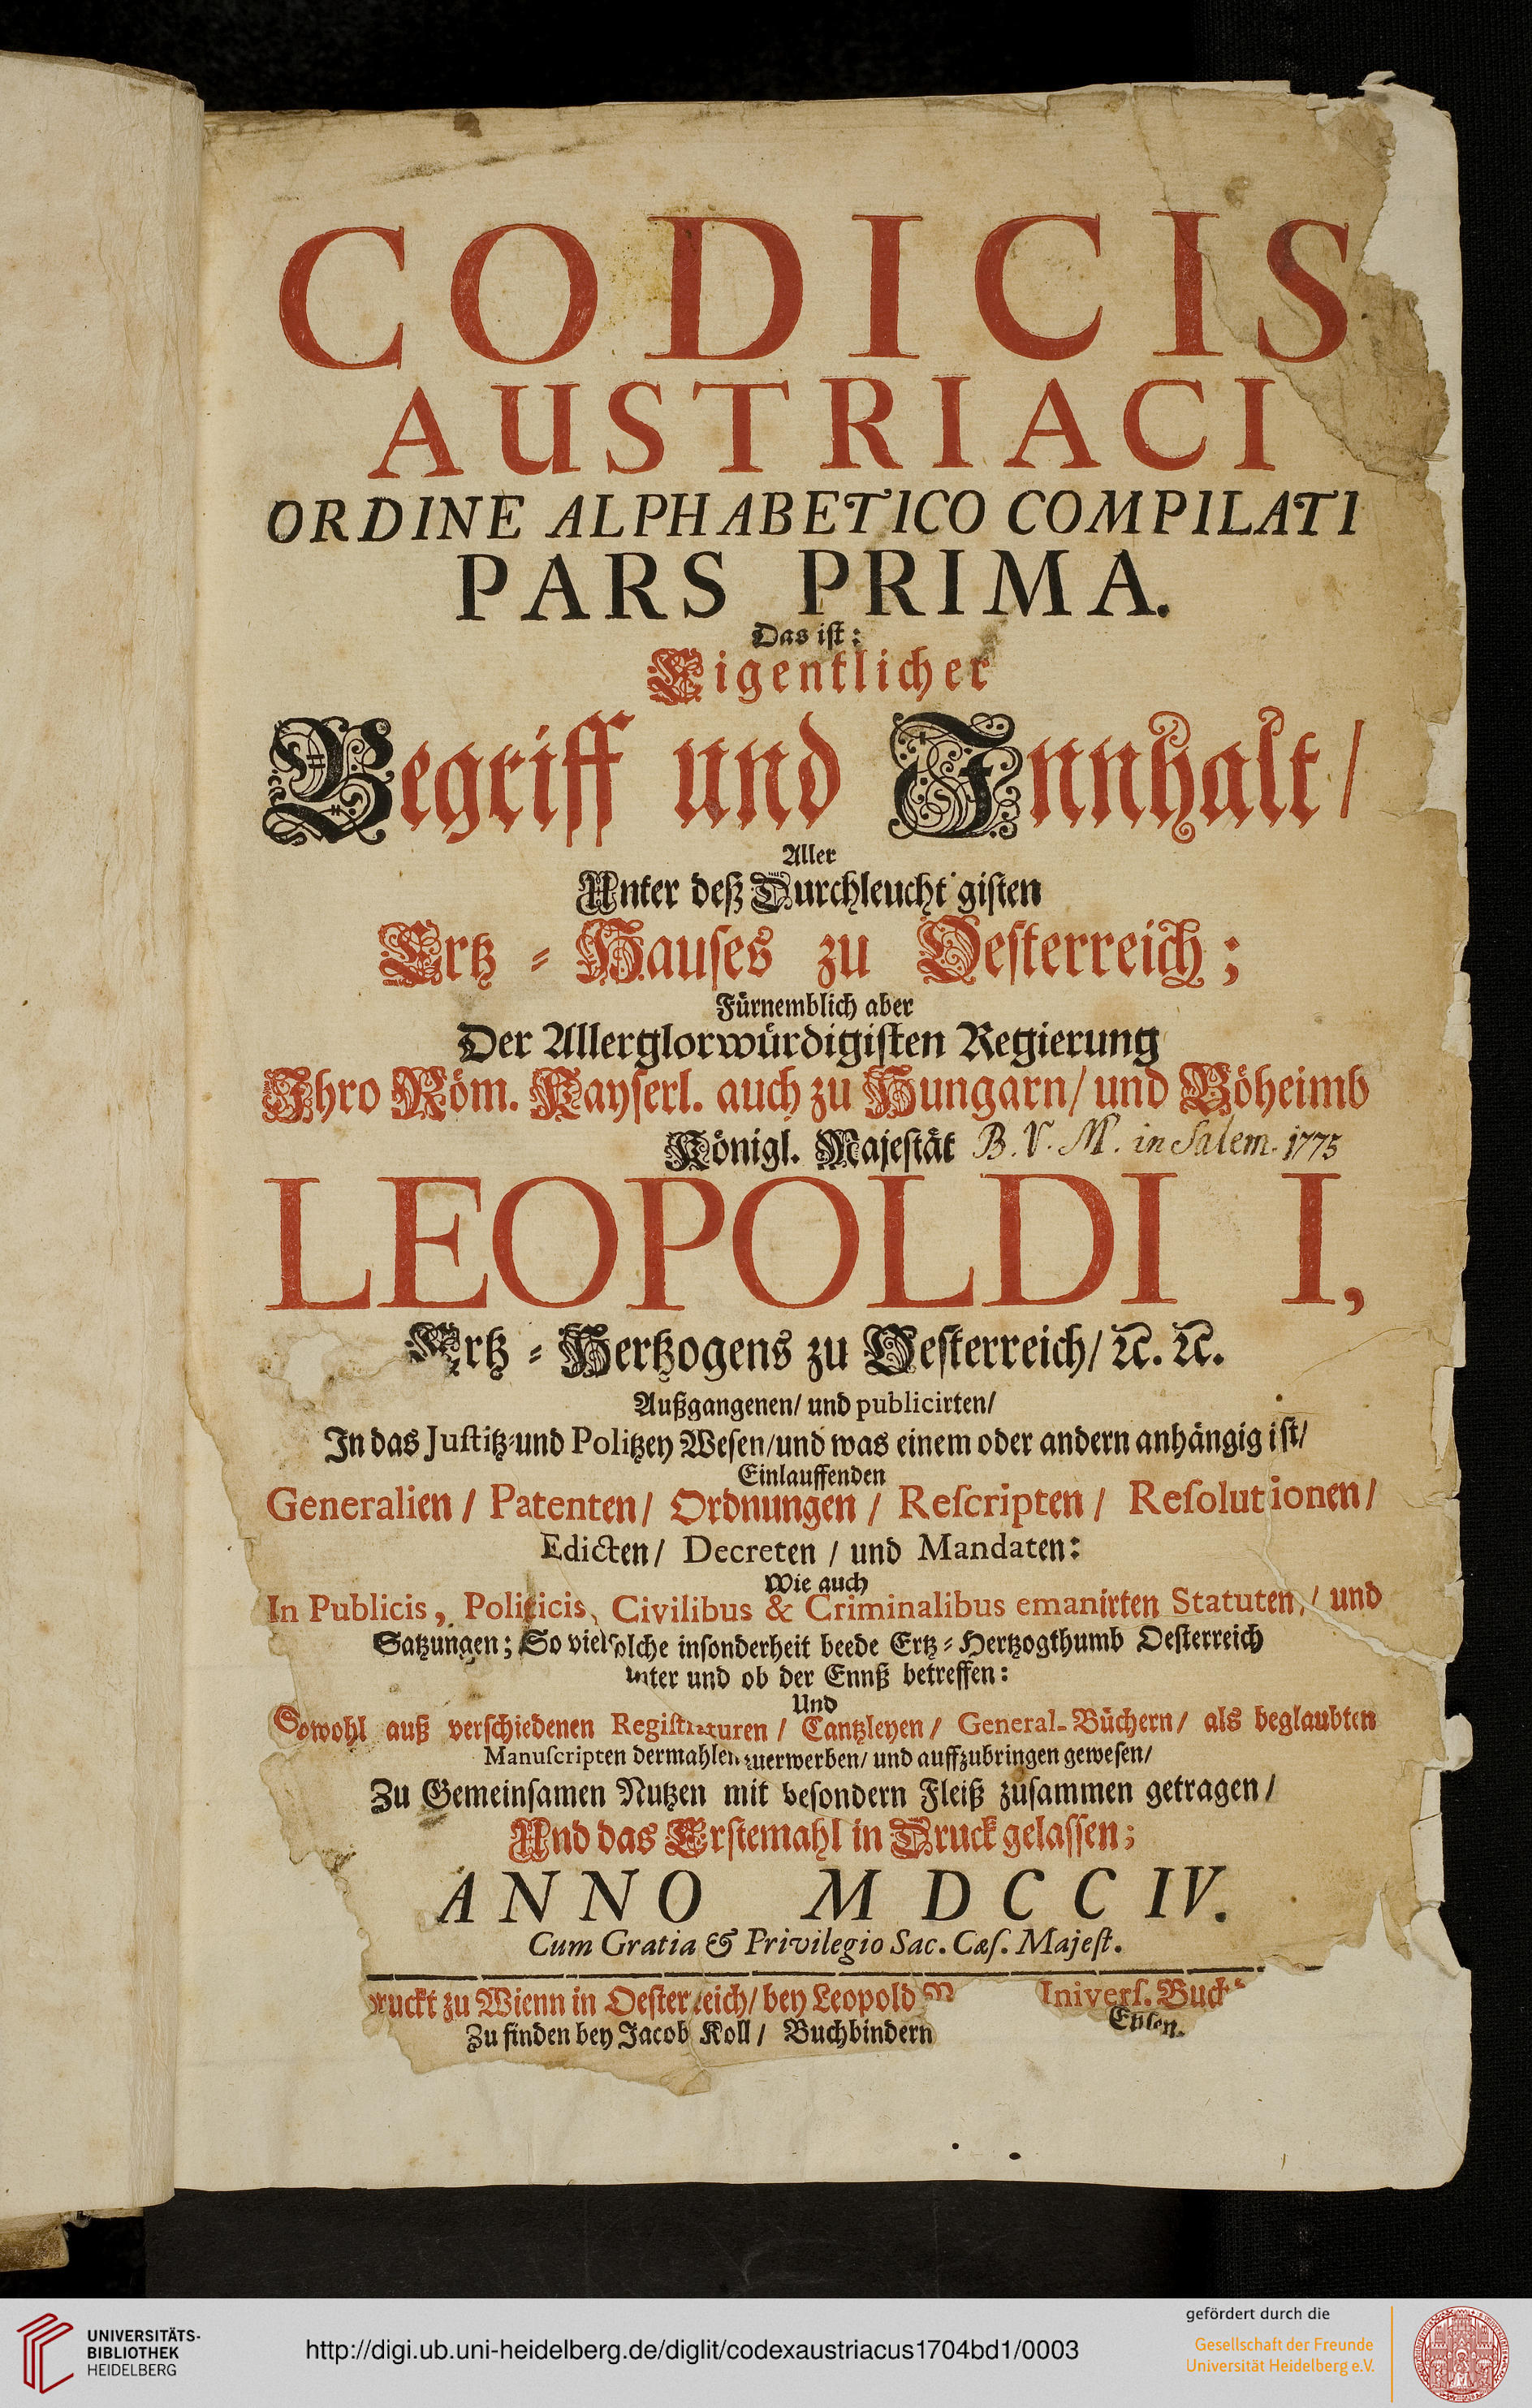 CODICIS
AUSTRIACI
ORDINE ALPHABETICO COMPILATI
PARS PRIMA.
Das ist:
Eigentlicher
Begriff und Innhalt/
Aller
Unter deß Durchleuchtigisten
Ertz-Hauses zu Oesterreich;
Fürnemblich aber
Der Allerglorwürdigisten Regierung
Ihro Röm. Kayserl. auch zu Hungarn/ und Böheimb
Königl. Majestät B. V. M. in Salem. 1775
LEOPOLDI I,
Ertz-Hertzogens zu Oesterreich/ ꝛc. ꝛc.
Außgangenen/ und publicirten/
In das Justitz-und Politzey Wesen/und was einem oder andern anhängig ist/
Einlauffenden
Generalien/ Patenten/ Ordnungen/ Rescripten/ Resolutionen/
Edicten/ Decreten/ und Mandaten:
Wie auch
In Publicis, Politicis, Civilibus & Criminalibus emanirten Statuten,/ und
Satzungen; So viel solche insonderheit beede Ertz-Hertzogthumb Oesterreich
unter und ob der Ennß betreffen:
Und
Sowohl auß verschiedenen Registraturen/ Cantzleyen/ General-Büchern/ als beglaubten
Manuscripten dermahlen zuerwerben/ und auffzubringen gewesen/
Zu Gemeinsamen Nutzen mit besondern Fleiß zusammen getragen/
Und das Erstemahl in Druck gelassen;
ANNO MDCCIV.
Cum Gratia & Privilegio Sac. Cæs. Majest.
ruckt zu Wienn in Oesterreich/ bey Leopold
Zu finden bey Jacob Koll/ Buchbindern
UNIVERSITÄTS-
BIBLIOTHEK
HEIDELBERG
http://digi.ub.uni-heidelberg.de/diglit/codexaustriacus1704bd1/0003
gefördert durch die
Gesellschaft der Freunde
Universität Heidelberg e.V.